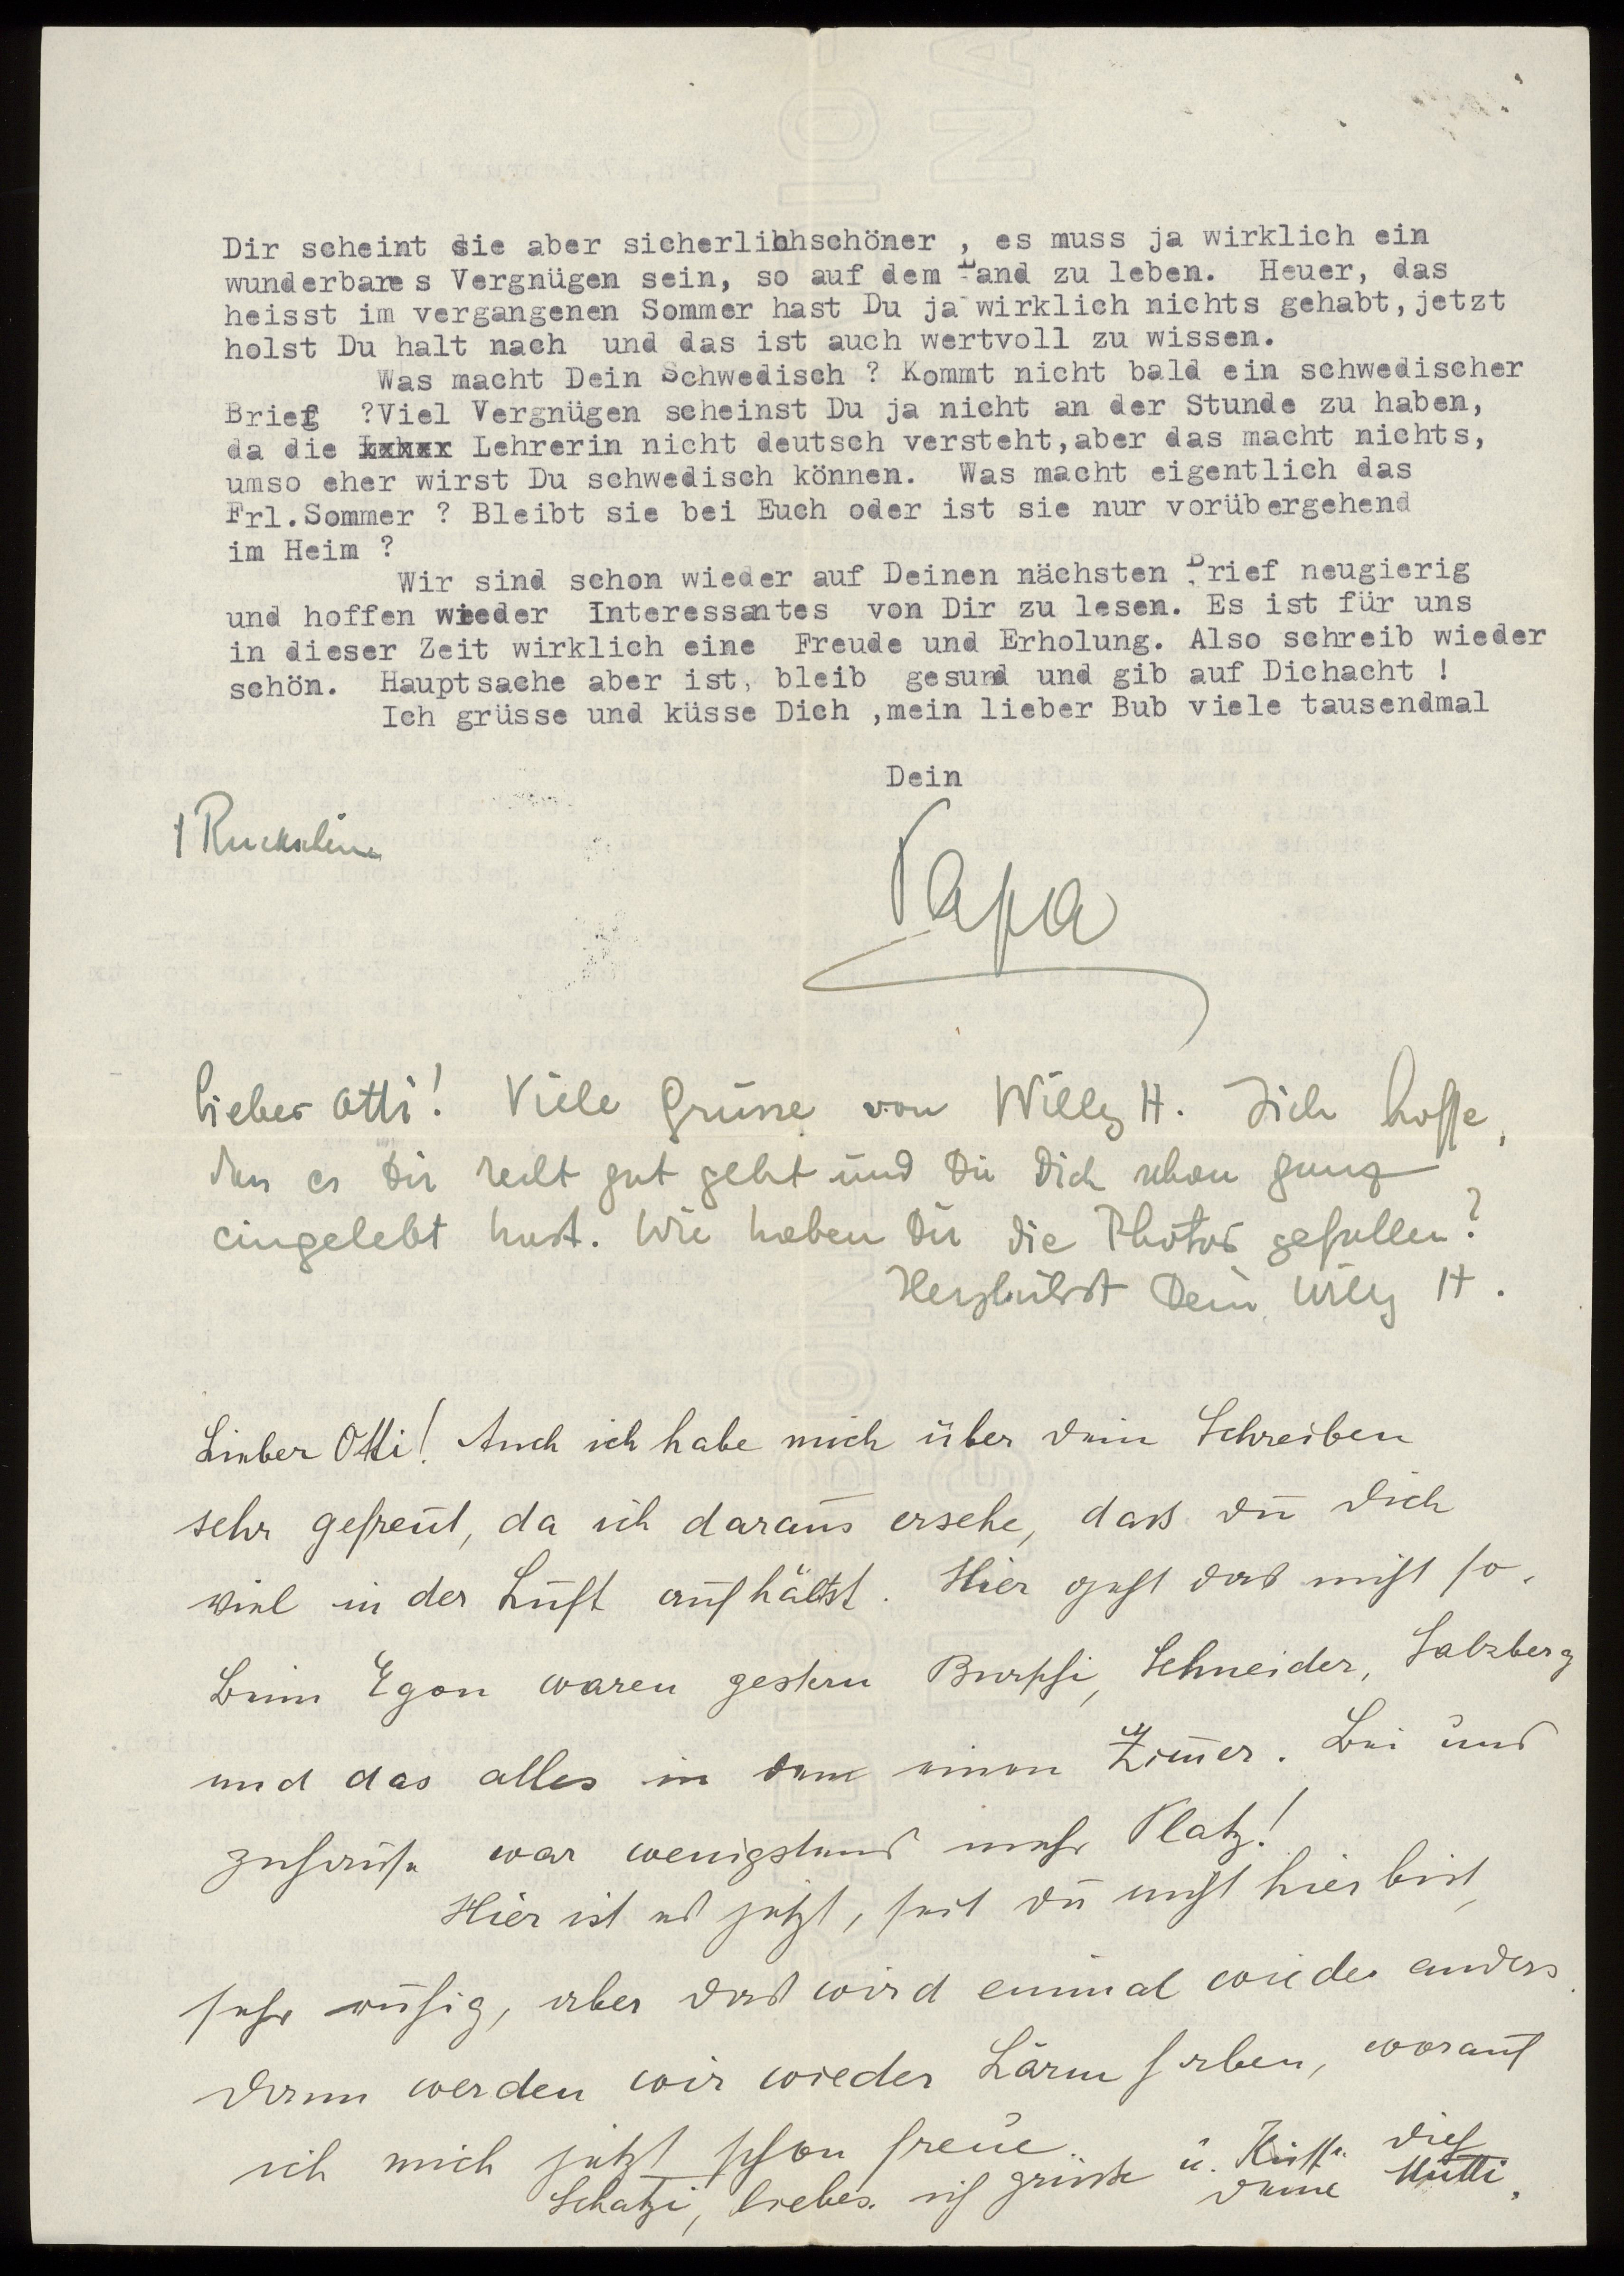 Dir scheint sie aber sicherlichschöner , es muss ja wirklich ein
wunderbares Vergnügen sein, so auf dem Land zu leben. Heuer, das
heisst im vergangenen Sommer hast Du ja wirklich nichts gehabt,jetzt
holst Du halt nach und das ist auch wertvoll zu wissen.
Was macht Dein Schwedisch ? Kommt nicht bald ein schwedischer
Brief ?Viel Vergnügen scheinst Du ja nicht an der Stunde zu haben,
da die Lehrerin nicht deutsch versteht,aber das macht nichts,
umso eher wirst Du schwedisch können. Was macht eigentlich das
Frl.Sommer ? Bleibt sie bei Euch oder ist sie nur vorübergehend
im Heim ?
Wir sind schon wieder auf Deinen nächsten Brief neugierig
und hoffen wieder Interessantes von Dir zu lesen. Es ist für uns
in dieser Zeit wirklich eine Freude und Erholung. Also schreib wieder
schön. Hauptsache aber ist, bleib gesund und gib auf Dichacht !
Ich grüsse und küsse Dich ,mein lieber Bub viele tausendmal
Dein
1
Papa
Lieber Otti! Viele Grüsse von Willy H. Ich hoffe,
dass es Dir recht gut geht und Du Dich schon ganz
eingelebt hast. Wie haben Dir die Photos gefallen?
Herzlichst Dein Willy H.
Lieber Otti! Auch ich habe mich über dein Schreiben
sehr gefreut, da ich daraus ersehe, dass du dich
viel in der Luft aufhältst. Hier geht das nicht so.
Beim Egon waren gestern Schneider, Salzberg
und das alles in dem einen Zimmer. Bei uns
zuhause war wenigstens mehr Platz!
Hier ist es jetzt, seit du nicht hier bist,
sehr ruhig, aber das wird einmal wieder anders.
Dann werden wir wieder Lärm haben, worauf
ich mich jetzt schon freue.
Schatzi, liebes. ich grüsse u. küsse dich
deine Mutti.